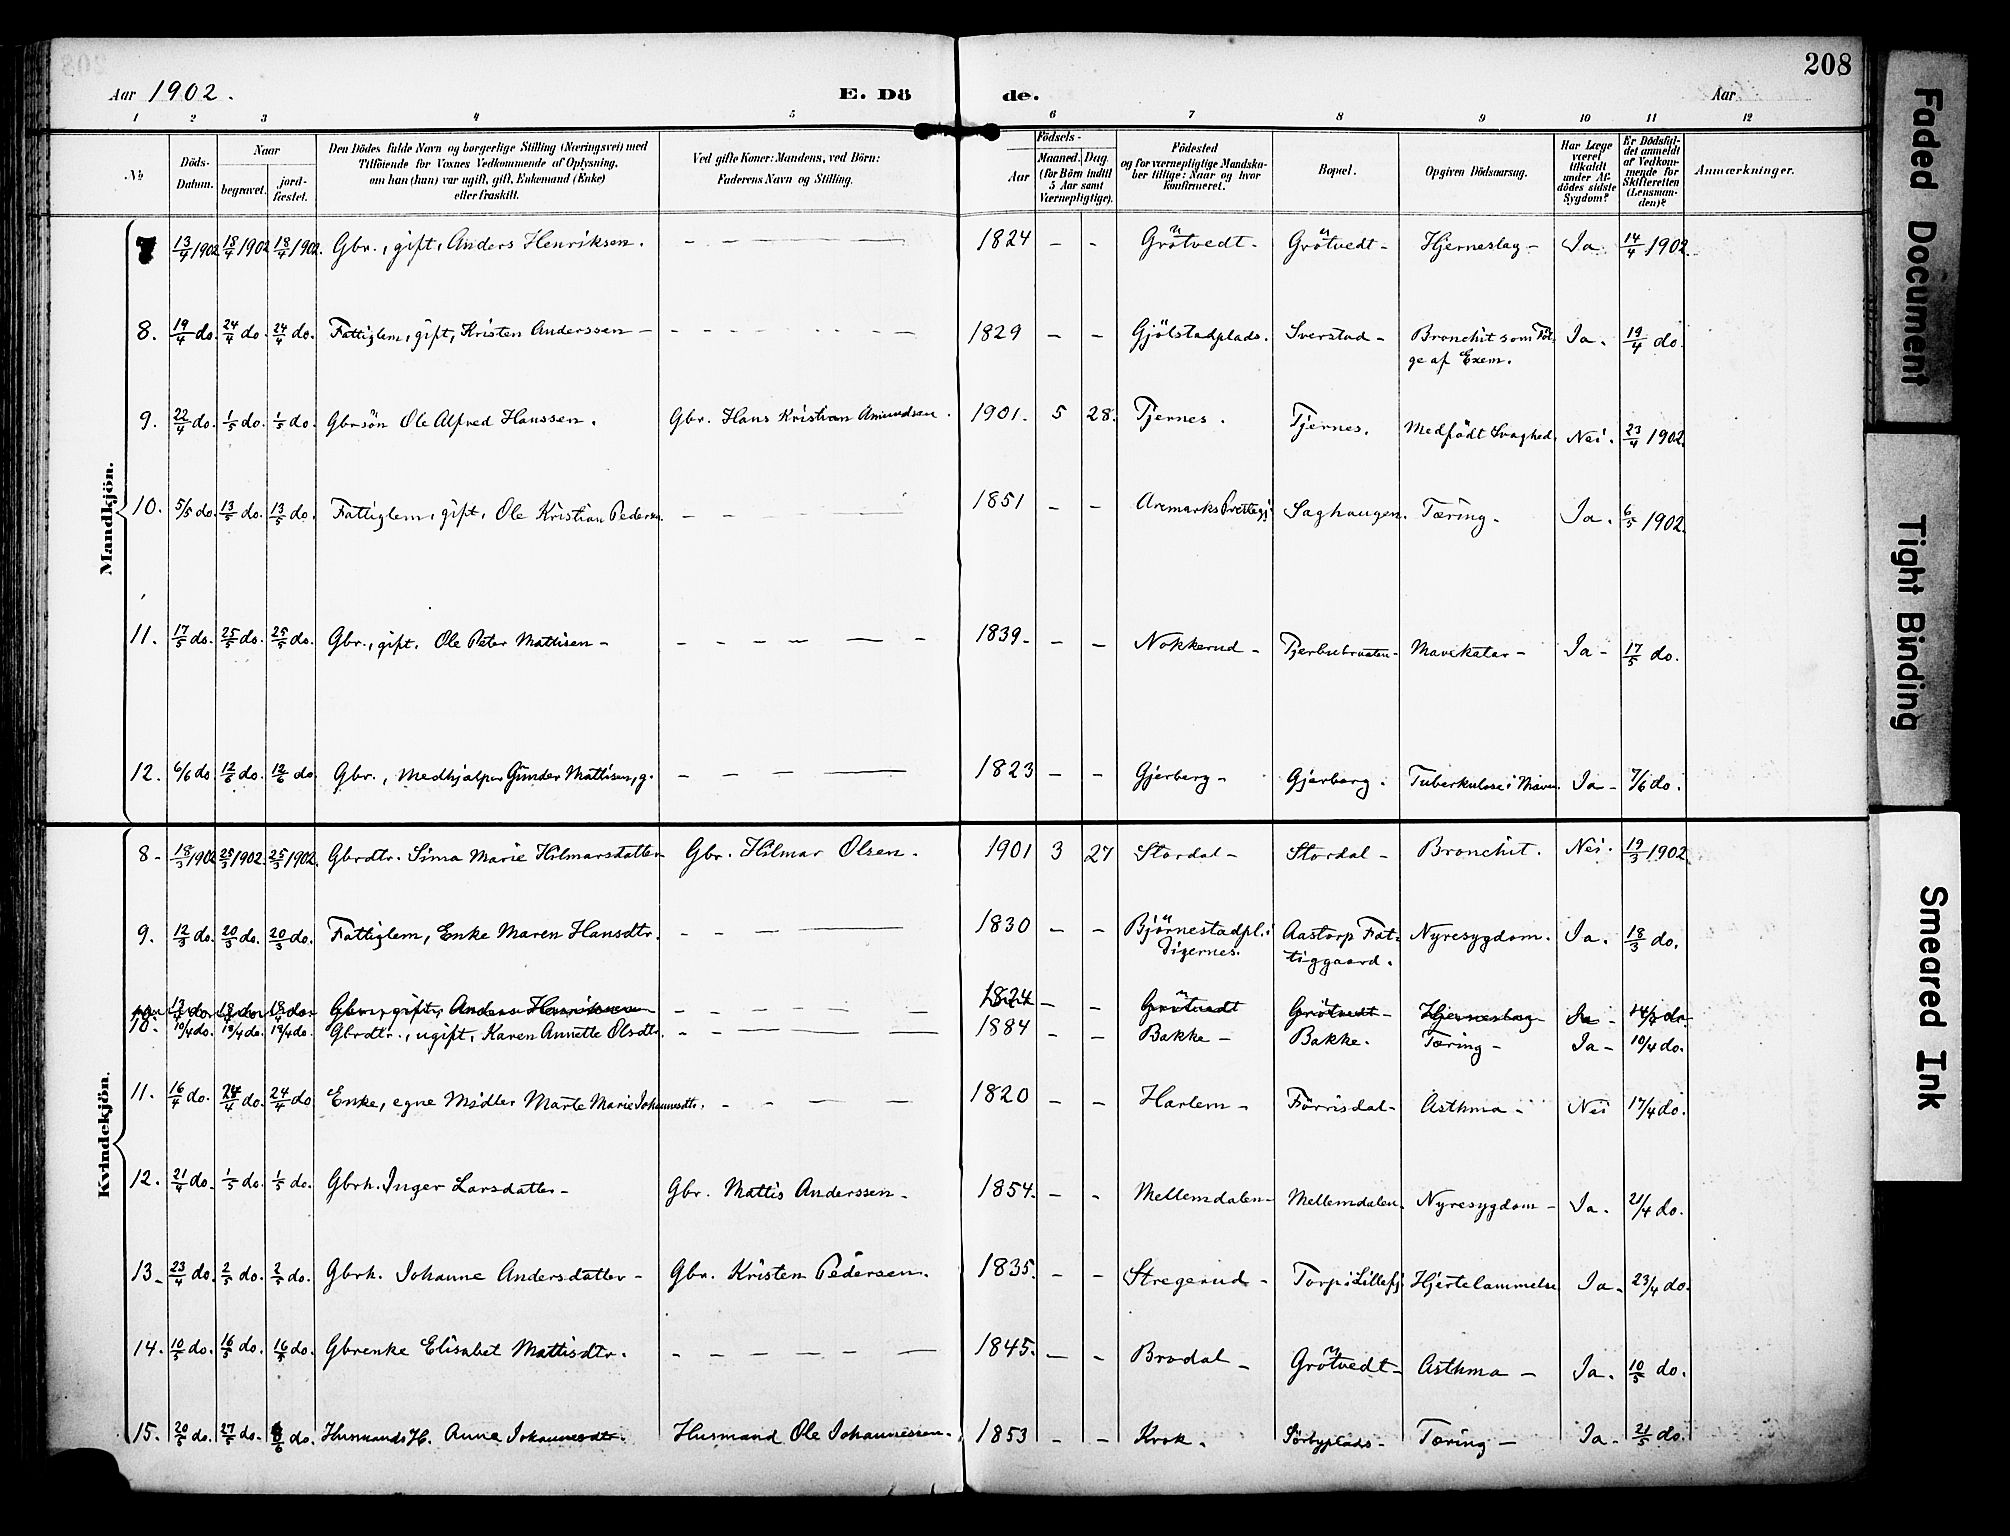 208
Aar 1902.
E. Dö de.
Aar
1 2 3 4 5 6 7 8 9 10 11 12
№
Döds-Datum.
Naar
begravet.
jord-fæstet.
Den Dödes fulde Navn og borgerlige Stilling (Næringsvei) med
Tilföiende for Voxnes Vedkommende af Oplysning,
om han (hun) var ugift, gift, Enkemand (Enke)
eller fraskilt.
Ved gifte Koner: Mandens, ved Börn:
Faderens Navn og Stilling.
Födsels-
Aar
Maaned. Dag.
(for Börn indtil
5 Aar samt
Værnepligtige).
Födested
og for værnepligtige Mandska-
ber tillige: Naar og hvor
konfirmeret.
Bopæl.
Opgiven Dödsaarsag.
Har Læge
været
tilkaldt
under Af-
dödes sidste
Sygdom?
Er Dödsfal-
det anmeldt
af Vedkom-
mende for
Skifteretten
(Lensman-
den)?
Anmærkninger.
Mandkjön.
7 13/4 1902 18/4 1902 18/4 1902. Gbr., gift, Anders Henriksen. — 1824 — — Grötvedt — Grötvedt — Hjerneslag — Ja. 14/4 1902.
8. 19/4 do. 24/4 do. 24/4 do. Fattiglem, gift, Kristen Anderssen — — 1829 — — Gjölstadplads. Sverstad — Bronchit som Föl-
ge af Exem. Ja. 19/4 do.
9. 22/4 do. 1/5 do. 1/5 do. Gbrsön Ole Alfred Hanssen. Gbr. Hans Kristian Amundsen. 1901. 5 28. Tjernes. Tjernes. Medfödt Svaghed. Nei. 23/4 1902.
10. 5/5 do. 13/5 do. 13/5 do. Fattiglem, gift, Ole Kristian Pedersen. — 1851 — — Aremarks Prestegj. Saghaugen. Tæring — Ja. 6/5 1902.
11. 17/5 do. 25/5 do. 25/5 do. Gbr., gift. Ole Peter Mattisen — — 1839 — — — Nokkerud — Mavekatar — Ja — 17/5 do.
12. 6/6 do. 12/6 do. 12/6 do. Gbr., Medhjælper Gunder Mattisen, g. — 1823 — — Gjerberg — Gjerberg. Tuberkulose i Maven. Ja — 7/6 do.
Kvindekjön.
8 — 18/3 1902 25/3 1902. 25/3 1902. Gbrdtr. Sina Marie Hilmarsdatter — Gbr. Hilmar Olsen. 1901 3 27 Stordal — Stordal — Bronchit. Nei. 19/3 1902
9. 12/3 do. 20/3 do. 20/3 do. Fattiglem, Enke Maren Hansdtr. — 1830 — — Björnestadpl. i
Digernes. Aastorp Fat-
tiggaard. Nyresygdom. Ja. 18/3 do.
13/4 do. 18/4 do. 18/4 do. Gbr., gift, Anders Henriksen — 1824 — — Grötvedt Grötvedt — Hjerneslag Ja — 14/4 do.
10. 10/4 do. 19/4 do. 19/4 do. Gbrdtr., ugift, Karen Annette Olsdtr. — 1884 — — Bakke — Bakke. Tæring — Ja — 10/4 do.
11. 16/4 do. 24/4 do. 24/4 do. Enke, egne Midler Marte Marie Johannesdtr. — 1820 — — Harlem — Förrisdal — Asthma — Nei 17/4 do.
12. 21/4 do. 1/5 do. 1/5 do. Gbrk. Inger Larsdatter — Gbr. Mattis Anderssen — 1854. — — Mellemdalen — Mellemdalen. Nyresygdom — Ja. 21/4 do.
13 — 23/4 do. 2/5 do. 2/5 do. Gbrk. Johanne Andersdatter — Gbr. Kristen Pedersen. 1835. — — Stregerud — Torp i Lillefj. Hjertelammelse Ja. 23/4 do.
14. 10/5 do. 16/5 do. 16/5 do. Gbrenke Elisabet Mattisdtr. — 1845. — — Brodal — Grötvedt — Asthma — Ja. 10/5 do.
15. 20/5 do. 27/5 do. 8/6 do. Husmands H. Anne Johannesdtr. Husmand Ole Johannessen. 1853 — — Krok. Sörbyplads — Tæring — Ja. 21/5 do.
Faded Document
Tight Binding
Smeared Ink